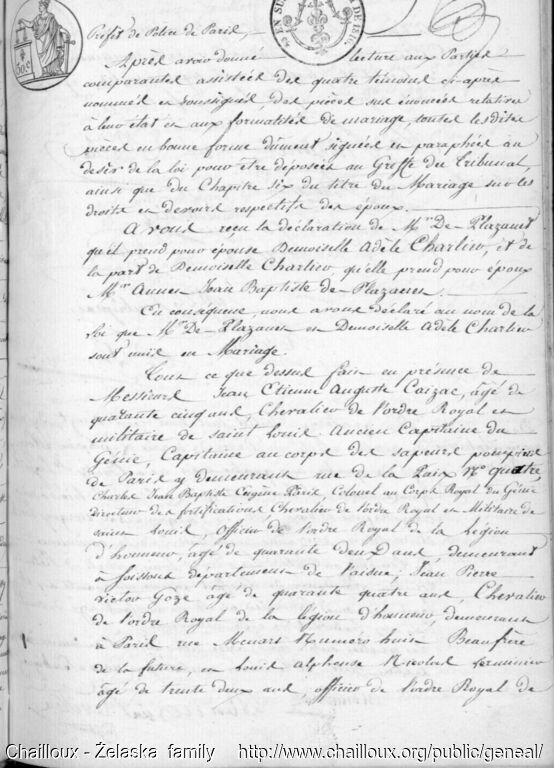 Préfet de Police de Paris,
Après avoir donné lecture aux Parties
comparantes assistées des quatre témoins ci-après
nommés et soussignés, des pièces sus énoncées relatives
à leur état et aux formalités de mariage, toutes lesdites
pièces en bonne forme dûment signées et paraphées au
désir de la loi pour être déposées au Greffe du Tribunal,
ainsi que du Chapitre six du titre du Mariage sur les
droits et devoirs respectifs des époux.
Avons reçu la déclaration de Mr De-Plazanet
qu'il prend pour épouse Demoiselle Adèle Charlier, et de
la part de Demoiselle Charlier, qu'elle prend pour époux
Mr Annet Jean Baptiste de-Plazanet.
En conséquence, nous avons déclaré au nom de la
loi que Mr De-Plazanet et Demoiselle Adèle Charlier
sont unis en Mariage.
Tout ce que dessus fait en présence de
Messieurs Jean Etienne Auguste Caizac, âgé de
quarante cinq ans, Chevalier de l'ordre Royal et
militaire de saint Louis Ancien Capitaine du
Génie, Capitaine au corps des sapeurs pompiers
de Paris y demeurant rue de la Paix No quatre,
Charles Jean Baptiste Eugène Paris, Colonel au Corps Royal du Génie
Directeur des fortifications Chevalier de l'ordre Royal et Militaire de
saint Louis, Officier de l'ordre Royal de la Légion
d'honneur, âgé de quarante deux ans, demeurant
à Soissons département de l'aisne; Jean Pierre
Victor Gèze âgé de quarante quatre ans, Chevalier
de l'ordre Royal de la légion d'honneur, demeurant
à Paris rue Menars Numero huit Beaufrère
de la future, et Louis Alphonse Nicolas
âgé de trente deux ans, officier de l'ordre Royal de
Chailloux - Żelaska family http://www.chailloux.org/public/geneal/